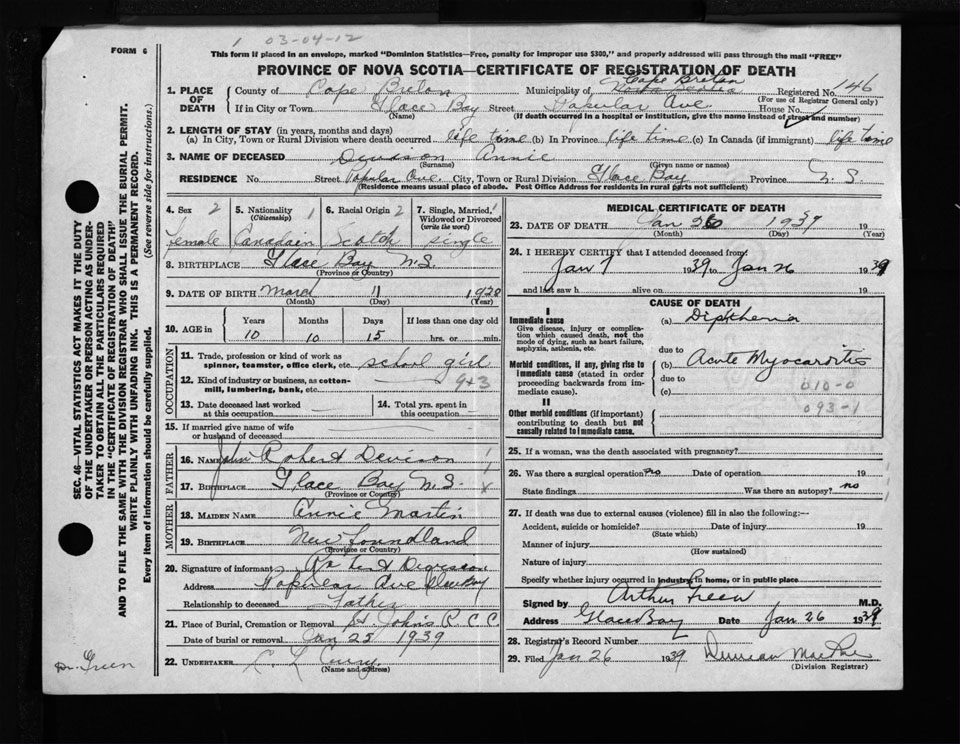 1 03-04-12
FORM 6
This form if placed in an envelope, marked "Dominion Statistics—Free, penalty for improper use $300," and properly addressed will pass through the mail "FREE"
PROVINCE OF NOVA SCOTIA—CERTIFICATE OF REGISTRATION OF DEATH
1. PLACE OF DEATH
County of Cape Breton Municipality of Nova Scotia Cape Breton Registered No. 146
(For use of Registrar General only)
If in City or Town Glace Bay Street Ave. House No.
(Name) (If death occurred in a hospital or institution, give the name instead of street and number)
2. LENGTH OF STAY (in years, months and days)
(a) In City, Town or Rural Division where death occurred life time (b) In Province life time (c) In Canada (if immigrant) life time
3. NAME OF DECEASED Annie
(Surname) (Given name or names)
RESIDENCE No. Street Popular Ave. City, Town or Rural Division Glace Bay Province N. S.
(Residence means usual place of abode. Post Office Address for residents in rural parts not sufficient)
4. Sex 2 female
5. Nationality (Citizenship) 1 Canadain
6. Racial Origin 2 Scotch
7. Single, Married, Widowed or Divorced (write the word) 1 single
8. BIRTHPLACE Glace Bay N.S.
(Province or Country)
9. DATE OF BIRTH March 11 1928
(Month) (Day) (Year)
10. AGE in Years Months Days If less than one day old
10 10 15 hrs. or min.
OCCUPATION
11. Trade, profession or kind of work as spinner, teamster, office clerk, etc. school girl
12. Kind of industry or business, as cotton-mill, lumbering, bank, etc. 9+3
13. Date deceased last worked at this occupation
14. Total yrs. spent in this occupation
15. If married give name of wife or husband of deceased
FATHER
16. NAME John Robert
17. BIRTHPLACE Glace Bay N.S.
(Province or Country)
MOTHER
18. MAIDEN NAME Annie Martin
19. BIRTHPLACE New Foundland
(Province or Country)
20. Signature of informant
Address Ave Glace Bay
Relationship to deceased Father
21. Place of Burial, Cremation or Removal St. John's R. C. C.
Date of burial or removal Jan 25 1939
22. UNDERTAKER C. L Curry
(Name and address)
MEDICAL CERTIFICATE OF DEATH
23. DATE OF DEATH Jan 26 1939 19
(Month) (Day) (Year)
24. I HEREBY CERTIFY that I attended deceased from
Jan 7 1939 to Jan 26 1939
and last saw h alive on 19
CAUSE OF DEATH
I
Immediate cause
Give disease, injury or complication which caused death, not the mode of dying, such as heart failure, asphyxia, asthenia, etc.
(a) Diptheria
due to
Morbid conditions, if any, giving rise to immediate cause (stated in order proceeding backwards from immediate cause).
(b) Acute Myocarditis
due to 010-0
(c)
093-1
II
Other morbid conditions (if important) contributing to death but not causally related to immediate cause.
25. If a woman, was the death associated with pregnancy?
26. Was there a surgical operation no Date of operation 19
State findings Was there an autopsy? no
27. If death was due to external causes (violence) fill in also the following:—
Accident, suicide or homicide? Date of injury 19
(State which)
Manner of injury
(How sustained)
Nature of injury
Specify whether injury occurred in industry, in home, or in public place
Signed by Arthur Green M.D.
Address Glace Bay Date Jan 26 1939
28. Registrar's Record Number
29. Filed Jan 26 1939 Duncan
(Division Registrar)
SEC. 46—VITAL STATISTICS ACT MAKES IT THE DUTY
OF THE UNDERTAKER OR PERSON ACTING AS UNDER-
TAKER TO OBTAIN ALL THE PARTICULARS REQUIRED
IN THE "CERTIFICATE OF REGISTRATION OF DEATH"
AND TO FILE THE SAME WITH THE DIVISION REGISTRAR WHO SHALL ISSUE THE BURIAL PERMIT.
WRITE PLAINLY WITH UNFADING INK. THIS IS A PERMANENT RECORD.
Every item of information should be carefully supplied. (See reverse side for instructions.)
Dr. Green